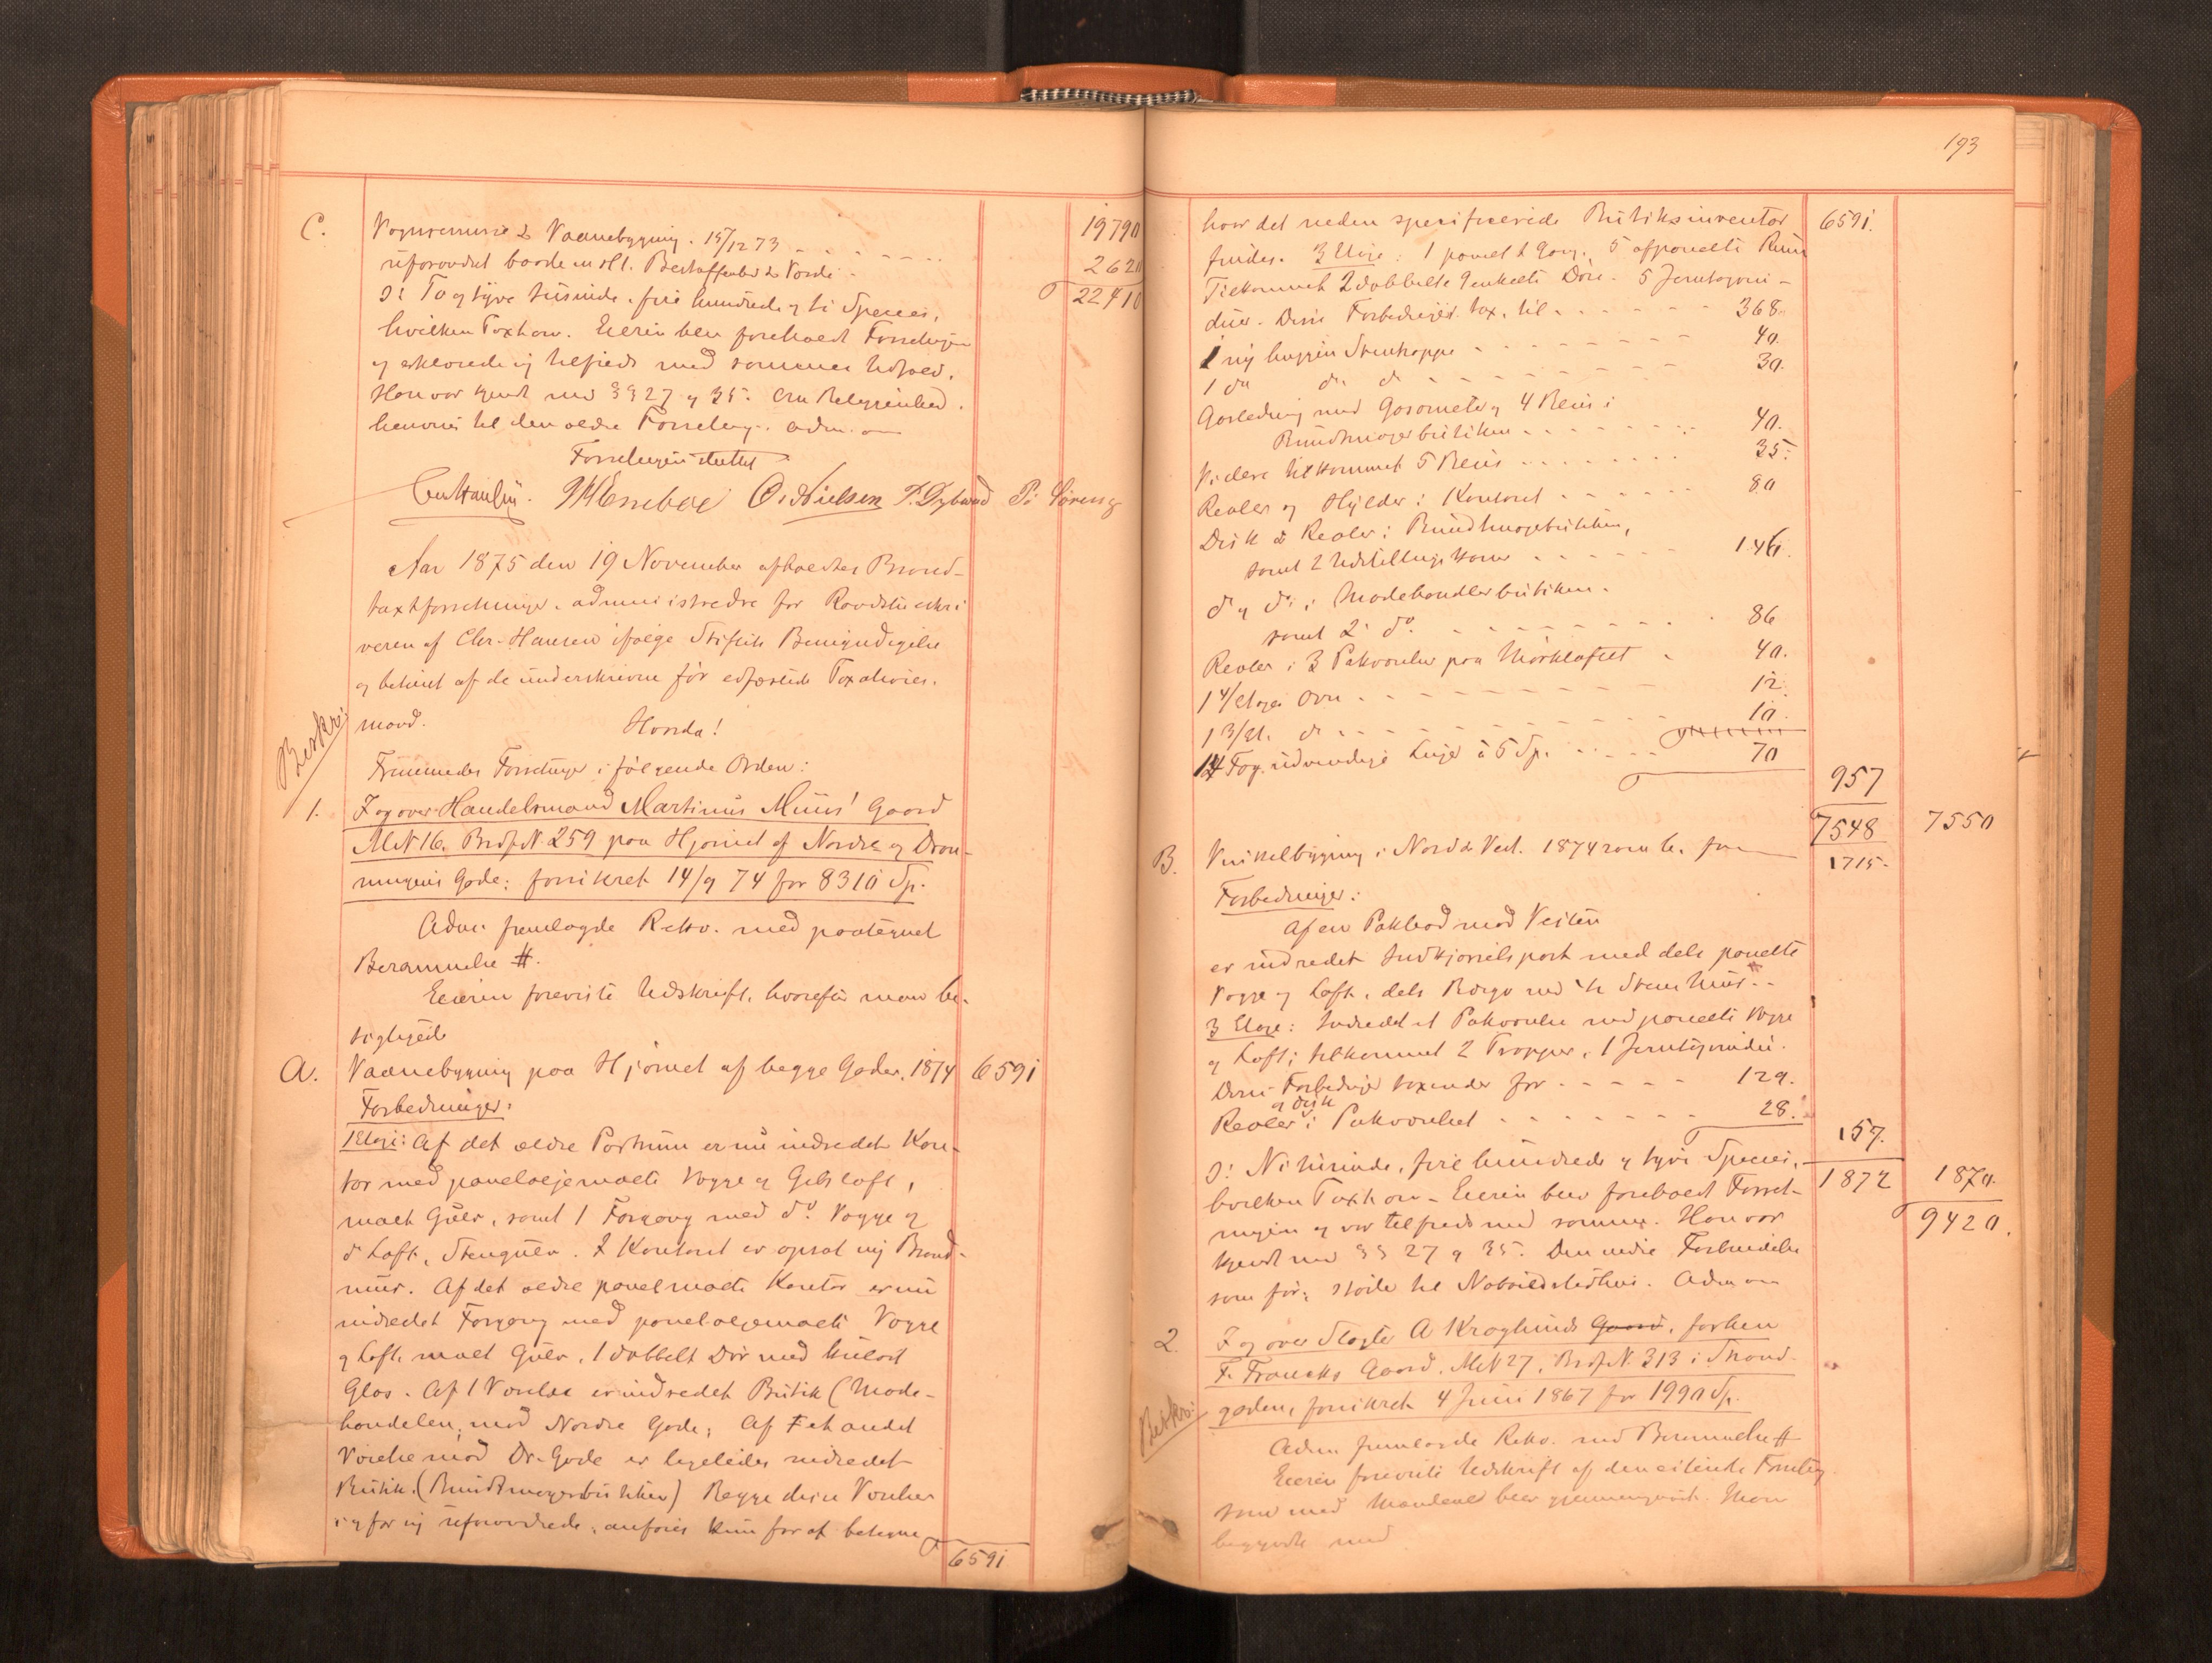 C. Vognremisse & Vaanebygning. 15/12 73 19790
uforandret baade m. H. t. Beskaffenhed & Værdi 2620
ɔ: To og tyve tusinde, fire hundrede og ti Species, 22410
hvilken Taxt een. Eieren blev foreholdt Forretningen
og erklærede sig tilfreds med sammes Udfald.
Han var kjendt med §§ 27 og 35. Om Beliggenhed
henvises til den ældre Forretning. Adm. —
Forretningen sluttet
Chr. Hansen. O. Nielsen P. Dybwad
Aar 1875 den 19 November afholdtes Brand-
taxtforretninger, administrerede for Raadstueskri-
veren af Chr. Hansen ifølge Stiftets Bemyndigelse
og betient af de underskrevne før edfæstede Taxations-
mænd.
Beskr:
Hvorda!
Fremmedes Forretninger i følgende Orden:
1. I og over Handelsmand Martinus Muus' Gaard
M.N. 16. Brdf. N. 259 paa Hjørnet af Nordre og Dron-
ningens Gade; forsikret 14/9 74 for 8310 Sp.
Adm. fremlagde Rekv. med paategnet
Berammelse #.
Eieren foreviste Udskrift, hvorefter man be-
sigtigede
A. Vaanebygning paa Hjørnet af begge Gader. 1874 6591
Forbedringer:
1 Etage: Af det ældre Portrum er nu indredet Kon-
tor med paneloliemalte Vægge og Gibsloft,
malt Gulv, samt 1 Forgang med do Vægge og
do Loft, Stengulv. I Kontoret er opsat ny Brand-
muur. Af det ældre panelmalte Kontor er nu
indredet Forgang med paneloliemalte Vægge
og Loft, malt Gulv, 1 dobbelt Dør med kulørt
Glas. Af 1 Værelse er indredet Butik (Mode-
handelen) mod Nordre Gade; Af et andet
Værelse mod Dr. Gade er ligeledes indredet
Butik. (Bundtmagerbutiken) Begge disse Værelser
i og for sig uforandrede, anføres kun for at betegne
6591
193
hvor det neden specificerede Butiksinventar 6591.
findes. 3 Etage: 1 panelt Gang, 5 afpanelte Rum
Tilkommet 2 dobbelte 9 enkelte Døre. 5 Jerntagvin-
duer. Disse Forbedringer tax. til 368.
1 ny huggen Stentrappe 40.
1 do do do 30.
Gasledning med Gasometer og 4 Beiis i
Bundtmagerbutiken 40.
Videre tilkommet 5 Beiis 35.
Realer og Hylder i Kontoret 80
Disk & Realer i Bundtmagerbutiken,
samt 2 Udstillingskarme 146.
do og do i Modehandlerbutiken.
samt 2 do 86
Realer i 3 Pakværelser paa Mørkloftet 40.
1 4/Etages Ovn 12.
1 3/Et. do 10.
14 Fag. udvendige Luger à 5 Sp. 70
957
7548 7550
B. Vinkelbygning i Nord & Vest. 1874 1715.
Forbedringer:
Af en Pakbod mod Veiten
er indredet Indkjørselsport med dels panelte
Vægge og Loft, dels Bærge med ½ Stens Muur.
3 Etage: Indredet et Pakværelse med panelte Vægge
og Loft; tilkommet 2 Trapper, 1 Jerntagvindu.
Disse Forbedringer taxeredes for 129.
Realer og Disk i Pakværelset 28.
157.
ɔ: Ni tusinde, fire hundrede og tyve Species, 1872 1870.
hvilken Taxt een. Eieren blev foreholdt Forret- 9420.
ningen og var tilfreds med samme. Han var
kjendt med §§ 27 og 35. Den nedre Forbindelse
som før; støder til Naboildstedhus. Adm.
2. I og over Slagter A Kroglunds Gaard, forhen
F. Francks Gaard. M.N. 27, Brdf. N. 313 i Strand-
gaden, forsikret 4 Juni 1867 for 1990 Sp.
Beskr:
Adm. fremlagde Rekv. med Berammelse #
Eieren foreviste Udskrift af den ældste Forretning
som med Mændene blev gjennemgaaet. Man
begyndte med